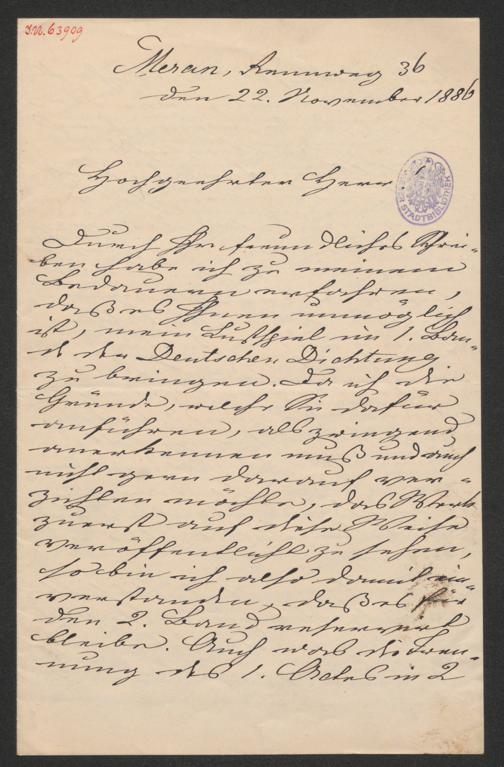 I.N. 63909
Meran, Rennweg 36
den 22. November 1886
Hochgeehrter Herr!
STADTBIBLIOTHEK
Durch Ihr freundliches Schrei-
ben habe ich zu meinem
Bedauern erfahren,
daß es Ihnen unmöglich
ist, mein Lustspiel im 1. Ban-
de der Deutschen Dichtung
zu bringen. Da ich die
Gründe, welche Sie dafür
anführen, als zwingend
anerkennen muß und auch
nicht gern darauf ver-
zichten möchte, das Werk
zuerst auf diese Weise
veröffentlicht zu sehen,
so bin ich also damit ein-
verstanden, daß es für
den 2. Band reservirt
bleibe. Auch was die Tren-
nung des 1. Actes in 2